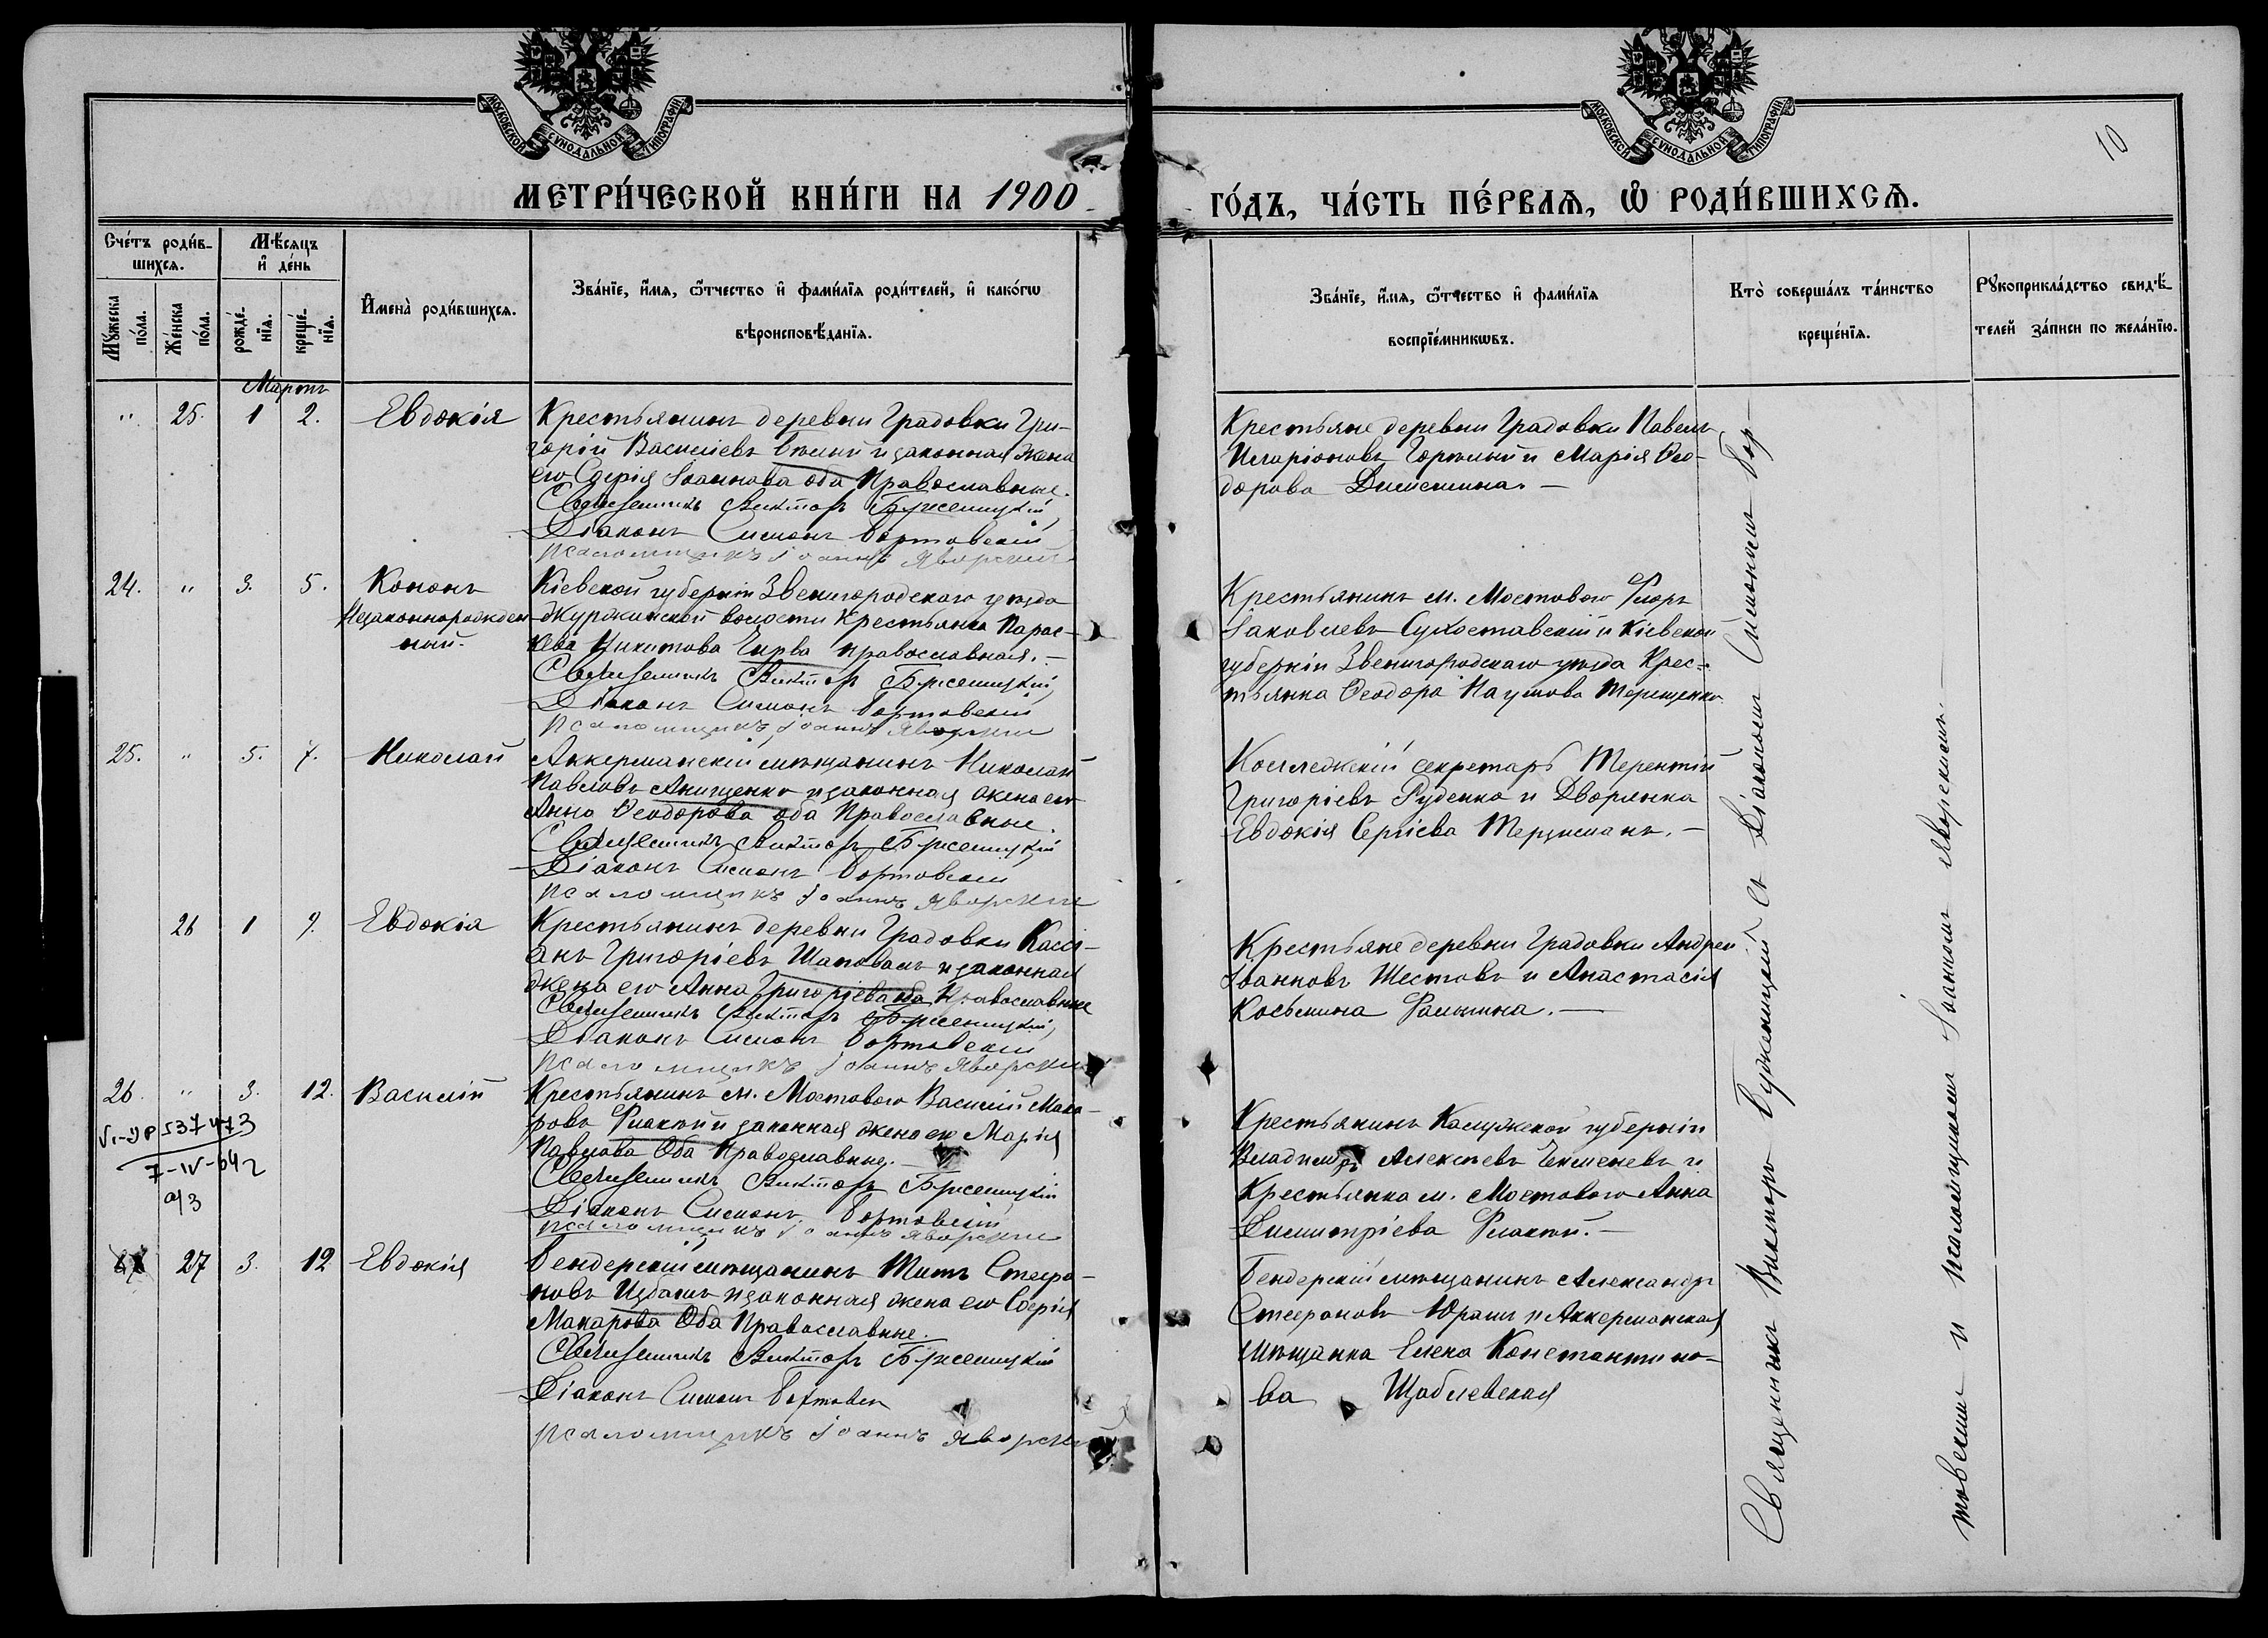 МОСКОВСКОЙ СУНОДАЛЬНОЙ ТИПОГРАФІИ
МОСКОВСКОЙ СУНОДАЛЬНОЙ ТИПОГРАФІИ
10
МЕТРИ́ЧЕСКОЙ КНИ́ГИ НА 1900
ГО́ДЪ, ЧА́СТЬ ПЕ́РВАЯ, Ѿ РОДИ́ВШИХСЯ.
Сче́тъ роди́в-
шихся.
Мѣ́сяцъ
и҆ де́нь
Мꙋ́жеска
по́ла.
Же́нска
по́ла.
рожде́-
нїя.
креще́-
нїя.
И҆мена̀ роди́вшихся.
Зва́нїе, и҆́мя, ѻ҆́тчество и҆ фами́лїя роди́телей, и҆ како́гѡ
вѣроисповѣ́данїя.
Зва́нїе, и҆́мя, ѻ҆́тчество и҆ фами́лїя
воспрїе́мникѡвъ.
Кто̀ соверша́лъ та́инство
креще́нїя.
Рꙋкоприкла́дство свидѣ́-
телей за́писи по жела́нїю.
Мартъ
" 25. 1 2. Евдокія
Крестьянинъ деревни Градовки Гри-
горій Васильевъ и законная жена
его Софія Іоаннова оба Православные.
Священникъ Викторъ Брженицкій
Діаконъ Симонъ Бортовскій
Псаломщикъ Іоаннъ Яворскій
Крестьяне деревни Градовки Павелъ
Иларіоновъ и Марія Ѳео-
дорова
24. " 3. 5. Кононъ
Незаконнорожден-
ный.
Кіевской губерніи Звенигородского уѣзда
Журжинской волости Крестьянка Парас-
кева Никитова Гирва православная.
Священникъ Викторъ Брженицкій
Діаконъ Симонъ Бортовскій
Псаломщикъ Іоаннъ Яворскій
Крестьянинъ м. Мостового Флоръ
Іаковлевъ Сухоставскій и Кіевской
губерніи Звенигородскаго уѣзда Крес-
тьянка Ѳеодора Наумова Терещенко
25. " 5. 7. Николай
Аккерманскій мѣщанинъ Николай
Павловъ Анищенко и законная жена его
Анна Ѳеодорова оба Православные.
Священникъ Викторъ Брженицкій
Діаконъ Симонъ Бортовскій
Псаломщикъ Іоаннъ Яворскій
Коллежскій секретарь Терентій
Григоріевъ Руденко и Дворянка
Евдокія Сергіева Терцманъ.
26 1 9. Евдокія
Крестьянинъ деревни Градовки Кассі-
анъ Григоріевъ Шаповалъ и законная
жена его Анна Григоріева оба Православные
Священникъ Викторъ Брженицкій
Діаконъ Симонъ Бортовскій
Псаломщикъ Іоаннъ Яворскій
Крестьяне деревни Градовки Андрей
Іоанновъ Шестовъ и Анастасія
Косьмина
26. " 3. 12. Василій
537473
7-IV-642
Крестьянинъ м. Мостового Василій Мака-
ровъ и законная жена его Марія
Павлова Оба Православные.
Священникъ Викторъ Брженицкій
Діаконъ Симонъ Бортовскій
Псаломщикъ Іоаннъ Яворскій
Крестьянинъ Калужской губерніи
Владиміръ Алексѣевъ и
Крестьянка м. Мостового Анна
Димитріева
27 3. 12 Евдокія
Бендерскій мѣщанинъ Титъ Стефа-
новъ Избашъ и законная жена его Софія
Макарова Оба Православные.
Священникъ Викторъ Брженицкій
Діаконъ Симонъ Бортовск
Псаломщикъ Іоаннъ Яворскій
Бендерскій мѣщанинъ Александръ
Стефановъ Юрашъ и Аккерманская
мѣщанка Елена Константино-
ва Щаблевская
Священникъ Викторъ Брженицкій съ Діакономъ Симономъ Бор-
товскимъ и псаломщикомъ Іоанномъ Яворскимъ.